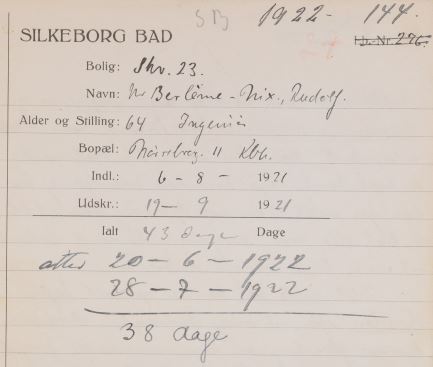 SB 1922 - 144.
SILKEBORG BAD I.D.-Nr. 276.
Bolig: Skr. 23.
Navn: Hr Berleme-Nix., Rudolf.
Alder og Stilling: 64 Ingeniør
Bopæl: 11 Kbh.
Indl.: 6 - 8 - 1921
Udskr.: 19 - 9 1921
Ialt 43 Dage Dage
atter 20 - 6 - 1922
28 - 7 - 1922
38 dage